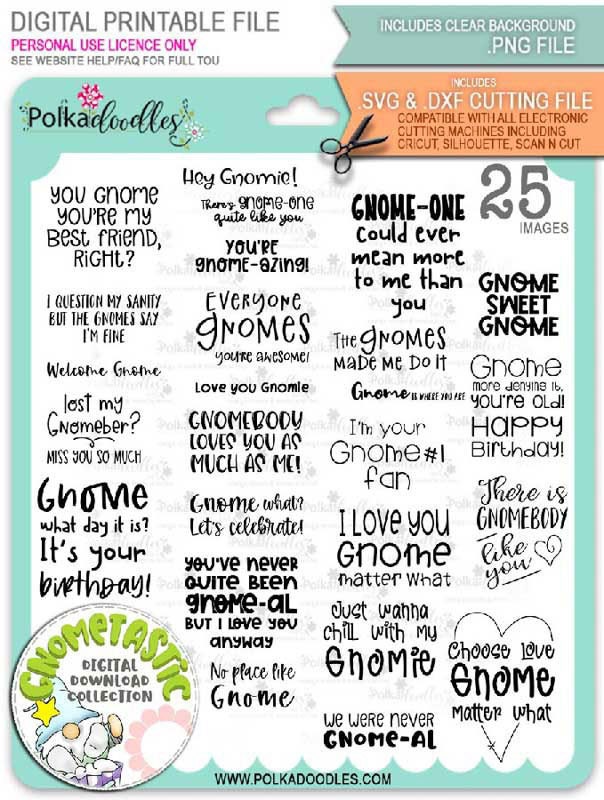 DIGITAL PRINTABLE FILE
PERSONAL USE LICENCE ONLY
SEE WEBSITE HELP/FAQ FOR FULL TOU
INCLUDES CLEAR BACKGROUND
.PNG FILE
INCLUDES
.SVG & .DXF CUTTING FILE
COMPATIBLE WITH ALL ELECTRONIC
CUTTING MACHINES INCLUDING
CRICUT, SILHOUETTE, SCAN N CUT
Polkadoodles
25
IMAGES
YOU GNOME
YOU'RE MY
BEST FRIEND,
RIGHT?
I QUESTION MY SANITY
BUT THE GNOMES SAY
I'M FINE
Welcome Gnome
lost my
Gnomeber?
MISS YOU SO MUCH
Gnome
what day it is?
It's your
birthday!
Hey Gnomie!
There's gnome-one
quite like you
YOU'RE
gnome-azing!
Everyone
gnomes
you're awesome!
Love you Gnomie
GNOMEBODY
LOVES YOU AS
MUCH AS ME!
Gnome what?
Let's celebrate!
YOU'VE NEVER
QUITE BEEN
gnome-al
BUT I LOVE YOU
anyway
No place like
Gnome
GNOME-ONE
could ever
mean more
to me than
you
The GNOMES
MADE ME DO IT
Gnome IS WHERE YOU ARE
I'm your
Gnome#1
fan
I LOVE YOU
Gnome
matter what
Just wanna
chill with my
Gnomie
WE WERE NEVER
GNOME-AL
GNOME
SWEET
GNOME
Gnome
more denying it,
you're OLD!
Happy
Birthday!
There is
GNOMEBODY
like
you
Choose love
Gnome
matter what
GNOMETASTIC
DIGITAL
DOWNLOAD
COLLECTION
WWW.POLKADOODLES.COM